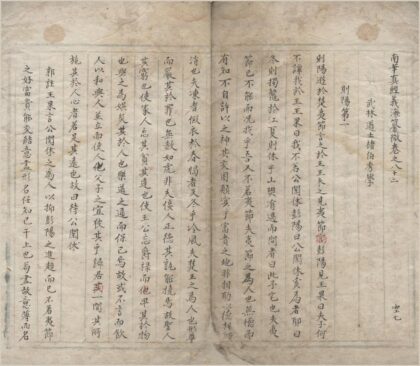 南華真經義海纂微卷之八十二
武林道士褚伯秀學
則陽第一
則陽遊於楚夷節言之於王王未之見夷節歸彭陽見王果曰夫子何
不譚我於王王果曰我不若公閱休彭陽曰公閱休奚為者耶曰
冬則擉鼈於江夏則休乎山樊有過而問者曰此予宅也夫夷
節已不能而況我乎吾又不若夷節夫夷節之為人也無德而
有知不自許以之神其交固顛冥乎富貴之地非相助以德相助
消也夫凍者假衣於春暍者反冬乎冷風夫楚王之為人也形尊
而嚴其於罪也無赦如虎非夫佞人正德其孰能橈焉故聖人
其窮也使家人忘其貧其達也使王公忘爵祿而化卑其於物
也與之為娛矣其於人也樂通之通而保己焉故或不言而飲
人以和與人並立而使人化父子之宜彼其乎歸居而一閒其所
施其於人心者若是其遠也故曰待公閱休
郭註王果言公閱休之為人以抑彭陽之進趨而已不若夷節
之好富貴能交結意盡形名任知以干上也苟盡故德薄而名
四七